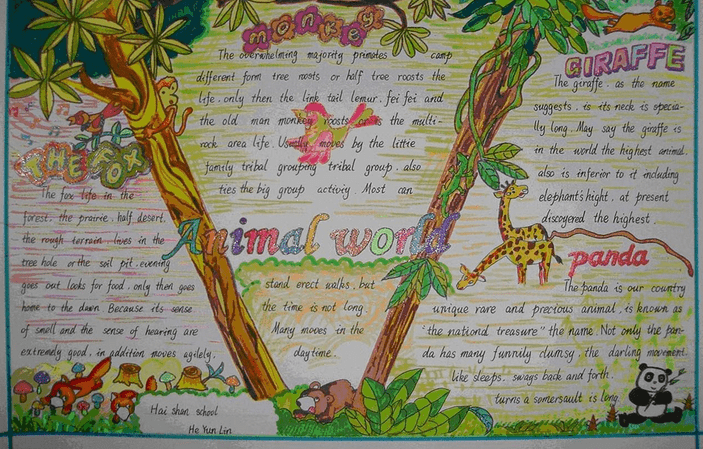 monkey
The overwhelming majority primates camp
different form tree roosts or half tree roosts the
life. only then the link tail lemur. fei fei and
the old man monkey roosts or is the multi-
rock area life. Usually moves by the little
family tribal grouping tribal group. also
ties the big group activiy. Most can
stand erect walks. but
the time is not long.
Many moves in the
daytime.
THE FOX
The fox life in the
forest. the prairie. half desert.
the rough terrain. lives in the
tree hole or the soil pit. evening
goes out looks for food. only then goes
home to the dawn Because its sense
of smell and the sense of hearing are
extremely good. in addition moves agilely.
Animal world
GIRAFFE
The giraffe. as the name
suggests. is its neck is specia-
lly long. May say the giraffe is
in the world the highest animal.
also is inferior to it including
elephant's hight. at present
discovered the highest.
panda
The panda is our country
unique rare and precious animal. is known as
"the national treasure" the name. Not only the pan-
da has many funnily clumsy. the darling movement.
like sleeps. sways back and forth.
turns a somersault is long.
Hai shan school
He Yun Lin